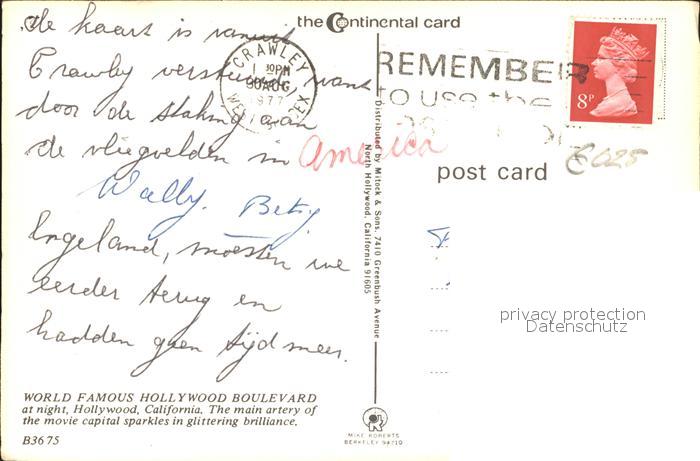 de kaart is vanuit
Crawley verstuurd want
door de staking aan
de vliegvelden in America
Wally. Betsy
Engeland, moesten we
eerder terug en
hadden geen tijd meer.
WORLD FAMOUS HOLLYWOOD BOULEVARD
at night, Hollywood, California. The main artery of
the movie capital sparkles in glittering brilliance.
B3675
the Continental card
CRAWLEY
1 30PM
30 AUG
1977
REMEMBER
to use the
8P
post card
Distributed by Mitock & Sons, 7410 Greenbush Avenue
North Hollywood, California 91605
privacy protection
Datenschutz
MIKE ROBERTS
BERKELEY 94710